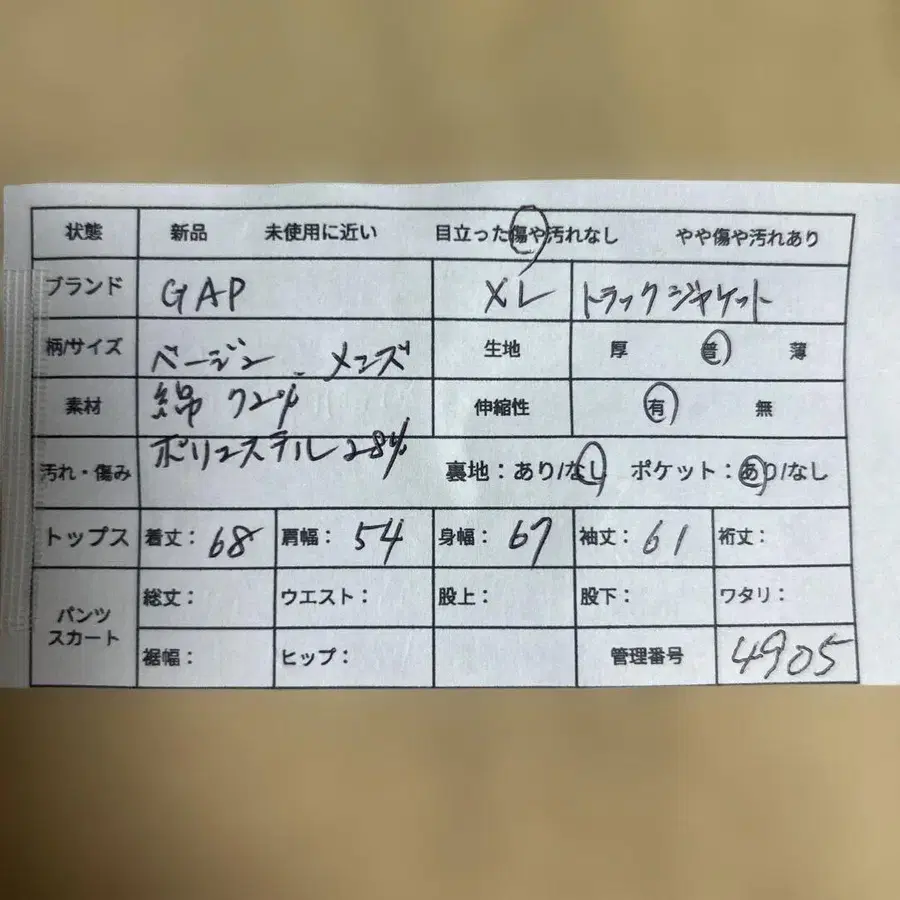 状態 新品 未使用に近い 目立った傷や汚れなし やや傷や汚れあり
ブランド GAP XL トラックジャケット
柄/サイズ メンズ 生地 厚 普 薄
素材 綿 72% 伸縮性 有 無
汚れ・傷み ポリエステル 28% 裏地:あり/なし ポケット:あり/なし
トップス 着丈:68 肩幅:54 身幅:67 袖丈:61 裄丈:
パンツ スカート 総丈: ウエスト: 股上: 股下: ワタリ:
裾幅: ヒップ: 管理番号 4905